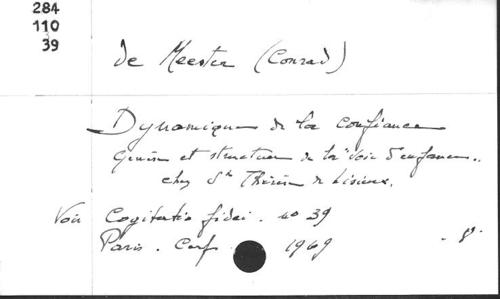 284
110
39
de Meester (Conrad)
Dynamique de la confiance
Genèse et structure de la "voie d'enfance"
chez Ste Thérèse de Lisieux.
Voir Cogitatio fidei. no 39
Paris. Cerf. 1969 - 8°